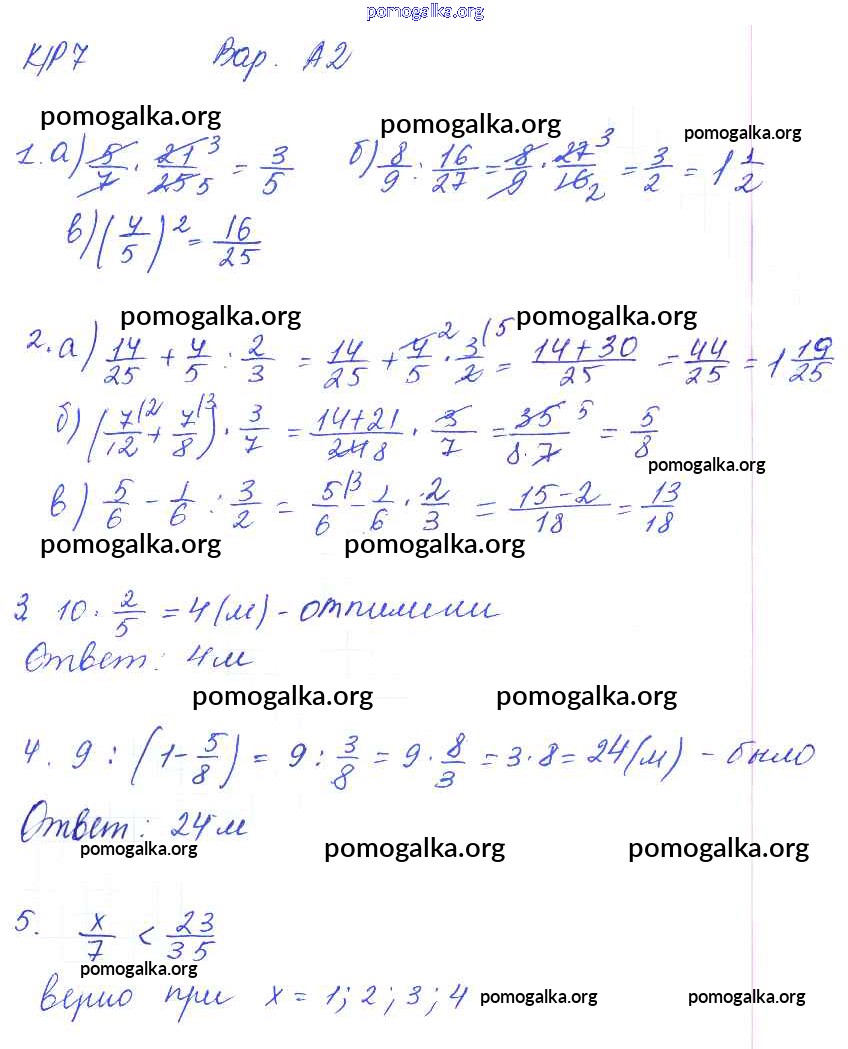 pomogalka.org
К/Р 7 Вар. А2
pomogalka.org pomogalka.org pomogalka.org
1. а) 5/7 · 21/25 = 3/5 б) 8/9 : 16/27 = 8/9 · 27/16 = 3/2 = 1 1/2
в) (4/5)² = 16/25
pomogalka.org pomogalka.org
2. а) 14/25 + 4/5 : 2/3 = 14/25 + 4/5 · 3/2 = 14+30/25 = 44/25 = 1 19/25
б) (7/12 + 7/8) · 3/7 = 14+21/24 · 3/7 = 35/8·7 = 5/8
pomogalka.org
в) 5/6 - 1/6 : 3/2 = 5/6 - 1/6 · 2/3 = 15-2/18 = 13/18
pomogalka.org pomogalka.org
3 10 · 2/5 = 4 (м) - отпилили
Ответ: 4 м
pomogalka.org pomogalka.org
4. 9 : (1 - 5/8) = 9 : 3/8 = 9 · 8/3 = 3 · 8 = 24 (м) - было
Ответ: 24 м
pomogalka.org pomogalka.org pomogalka.org
5. x/7 < 23/35
pomogalka.org
верно при x = 1; 2; 3; 4
pomogalka.org pomogalka.org